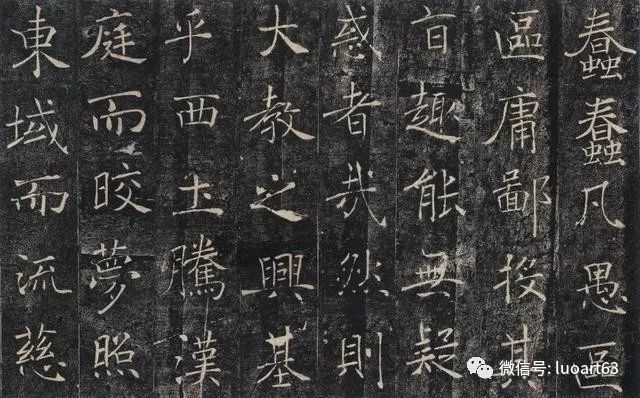 蠢蠢凡愚區
區庸鄙投其
旨趣能無疑
惑者哉然則
大教之興基
乎西土騰漢
庭而皎夢照
東域而流慈
微信号: luoart63